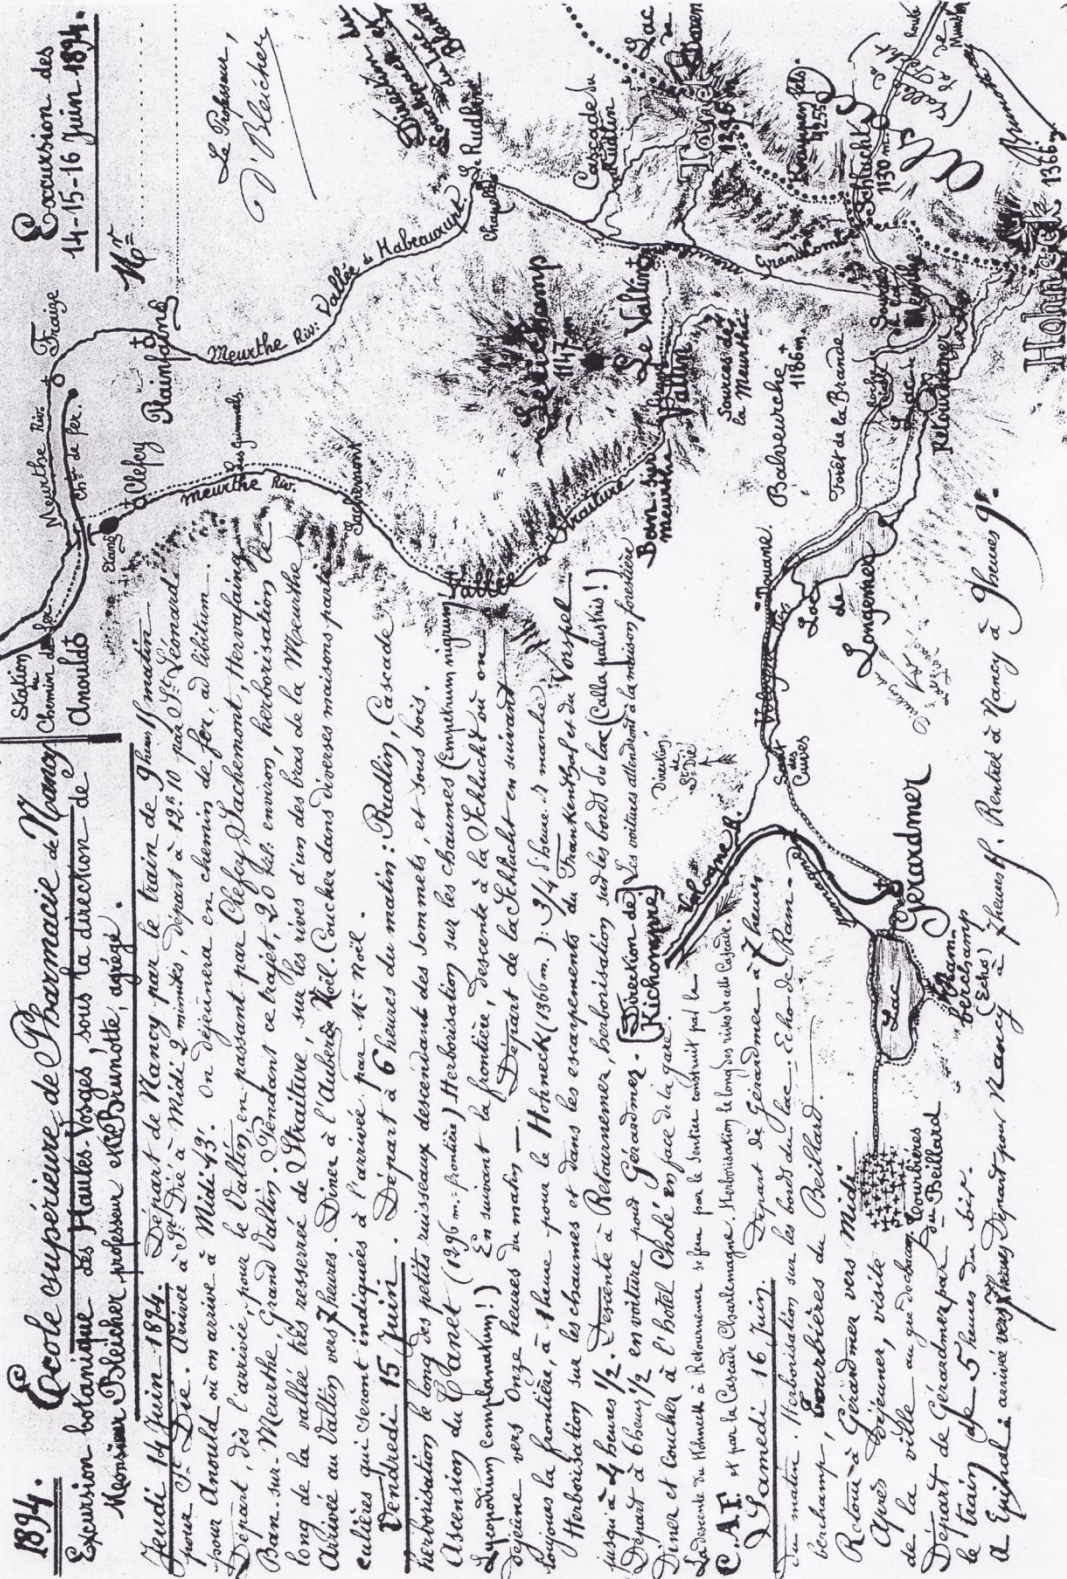 1894.
École supérieure de Pharmacie de Nancy
Excursion botanique des Hautes-Vosges, sous la direction de
Monsieur Bleicher professeur et Mr Brunotte, agrégé.
Excursion des
14-15-16 Juin 1894.
Mr
Le Professeur,
Dr Bleicher
Jeudi 14 Juin 1894. Départ de Nancy par le train de 9 heures matin
pour St Dié. Arrivée à St Dié à Midi 2 minutes, départ à 12h 10 pour St Léonard
pour Anould où on arrive à Midi 43'. On déjeunera en chemin de fer, ad libitum.
Départ, dès l'arrivée, pour le Valtin, en passant par Clefcy, Sachemont, Hervafaing
Ban-sur-Meurthe, Grand Valtin. Pendant ce trajet, 20 kil. environ, herborisation le
long de la vallée très resserrée de Straiture, sur les rives d'un des bras de la Meurthe
Arrivée au Valtin vers 7 heures. Diner à l'Auberge Noël. Coucher dans diverses maisons parti-
culières qui seront indiquées à l'arrivée, par Mr Noël.
Vendredi 15 Juin. Départ à 6 heures du matin : Rudlin, Cascade
herborisation le long des petits ruisseaux descendant des sommets, et sous bois.
Ascension du Tanet (1296 m. frontière) Herborisation sur les chaumes (Empetrum nigrum
Lycopodium complanatum!) En suivant la frontière, descente à la Schlucht où on
déjeune vers Onze heures du matin. Départ de la Schlucht en suivant
toujours la frontière, à 1 heure pour le Hohneck (1366 m.): 3/4 d'heure de marche
Herborisation sur les chaumes et dans les escarpements du Frankenthal et du Worspel
jusqu'à 4 heures 1/2. Descente à Retournemer, herborisation sur les bords du lac (Calla palustris!)
Départ à 6 heures 1/2 en voiture pour Gérardmer. Les voitures attendront à la maison forestière
Diner et Coucher à l'hôtel Cholé en face de la gare.
La descente du Hohneck à Retournemer se fera par le Sentier construit par le
C.A.F. et par la Cascade Charlemagne. Herborisation le long des rives de cette Cascade.
Samedi 16 Juin. Départ de Gérardmer à 7 heures
du matin. Herborisation sur les bords du lac - Echo de Ram-
berchamp, Tourbières du Beillard.
Retour à Gérardmer vers Midi.
Après déjeuner, visite
de la ville
Départ de Gérardmer par
le train de 5 heures du soir.
à Epinal : arrivée vers 7 heures Départ pour Nancy à 7 heures 1/2. Rentrée à Nancy à 9 heures
Station
du
Chemin de fer
Anould
Meurthe Riv.
Chn de fer.
Fraize
Etang
Clefcy
Plainfaing
Meurthe Riv.
Meurthe Riv: Vallée de Habeaurupt
Sachemont
Vallée
Straiture
Le Rudlin
Chapelle
Cascade du
Rudlin
Direction du
Lac
Tanet
1296 m
Sérichamp
1147 m
Le Valtin
Ban sur
Meurthe
Grand
Valtin
Sources de
la Meurthe
Balveurche
1186 m
Forêt de la Brande
Schlucht
1130 m
Vallée de
Munster
Source
Meurthe
Roche
du
Diable
Lac
Retournemer
Hohneck 1366 m
Lac
de
Longemer
Vologne Riv.
Saut
des
Cuves
Direction
de
St Dié
Vologne R.
Direction de
Kichompré
Gérardmer
Lac
Ram-
berchamp
(Echo)
Tourbières
du Beillard